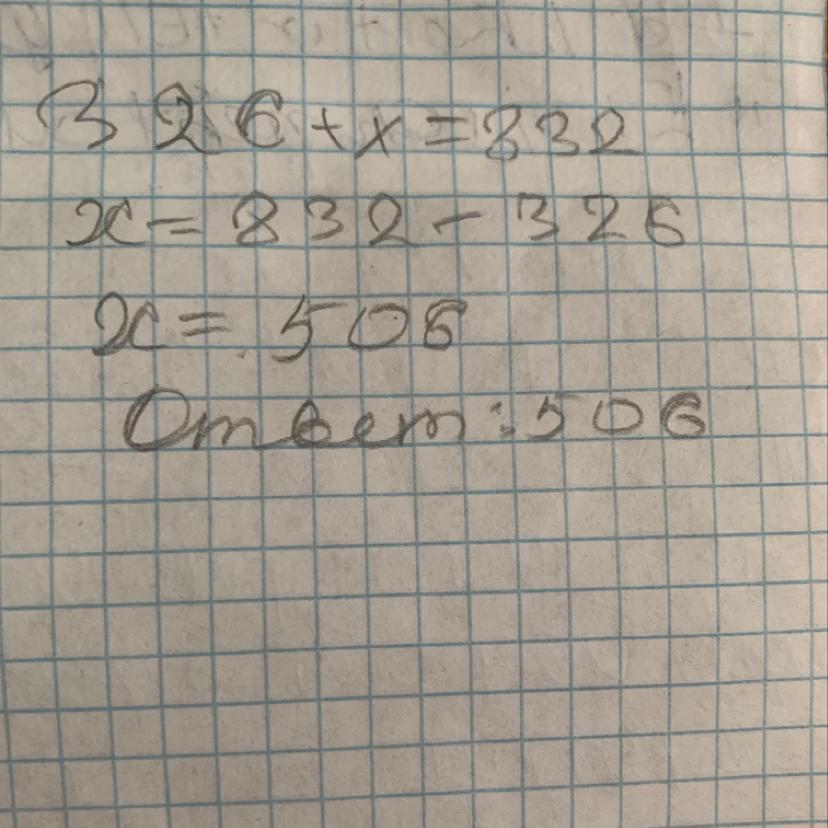 326+x=832
x=832-326
x=506
Ответ:506